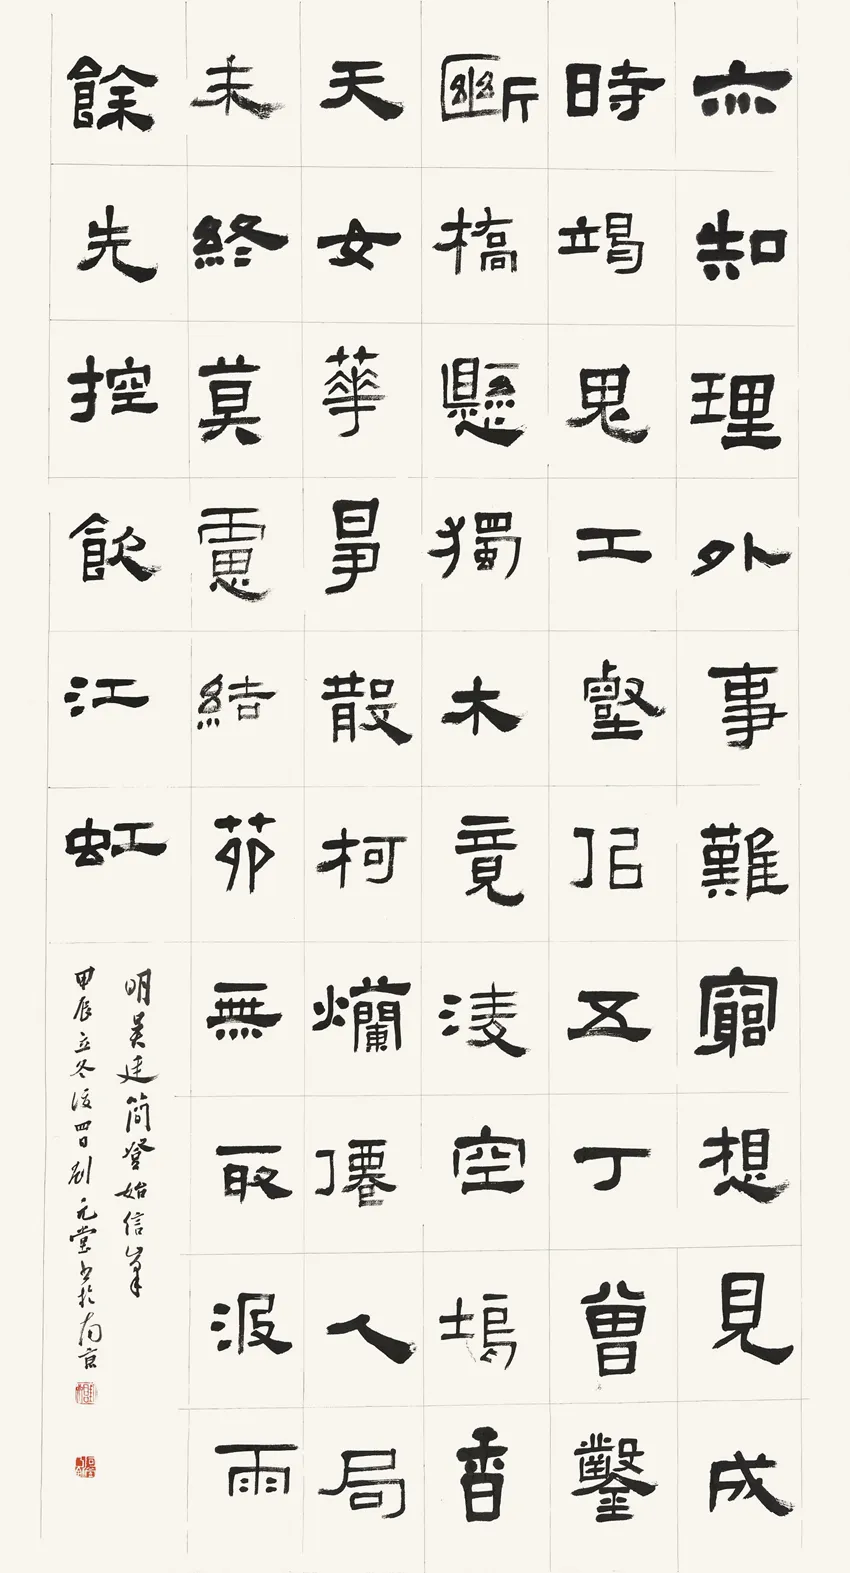 亦知理外事難窮想見成
時竭鬼工壑佀五丁曾鑿
斷橋懸獨木竟淩空塢香
天女華散柯爛僊人局
未終莫慮結茆無取汲雨
餘先控飲江虹
明吳廷簡登始信峯
甲辰立冬後四日劉元堂書於南京